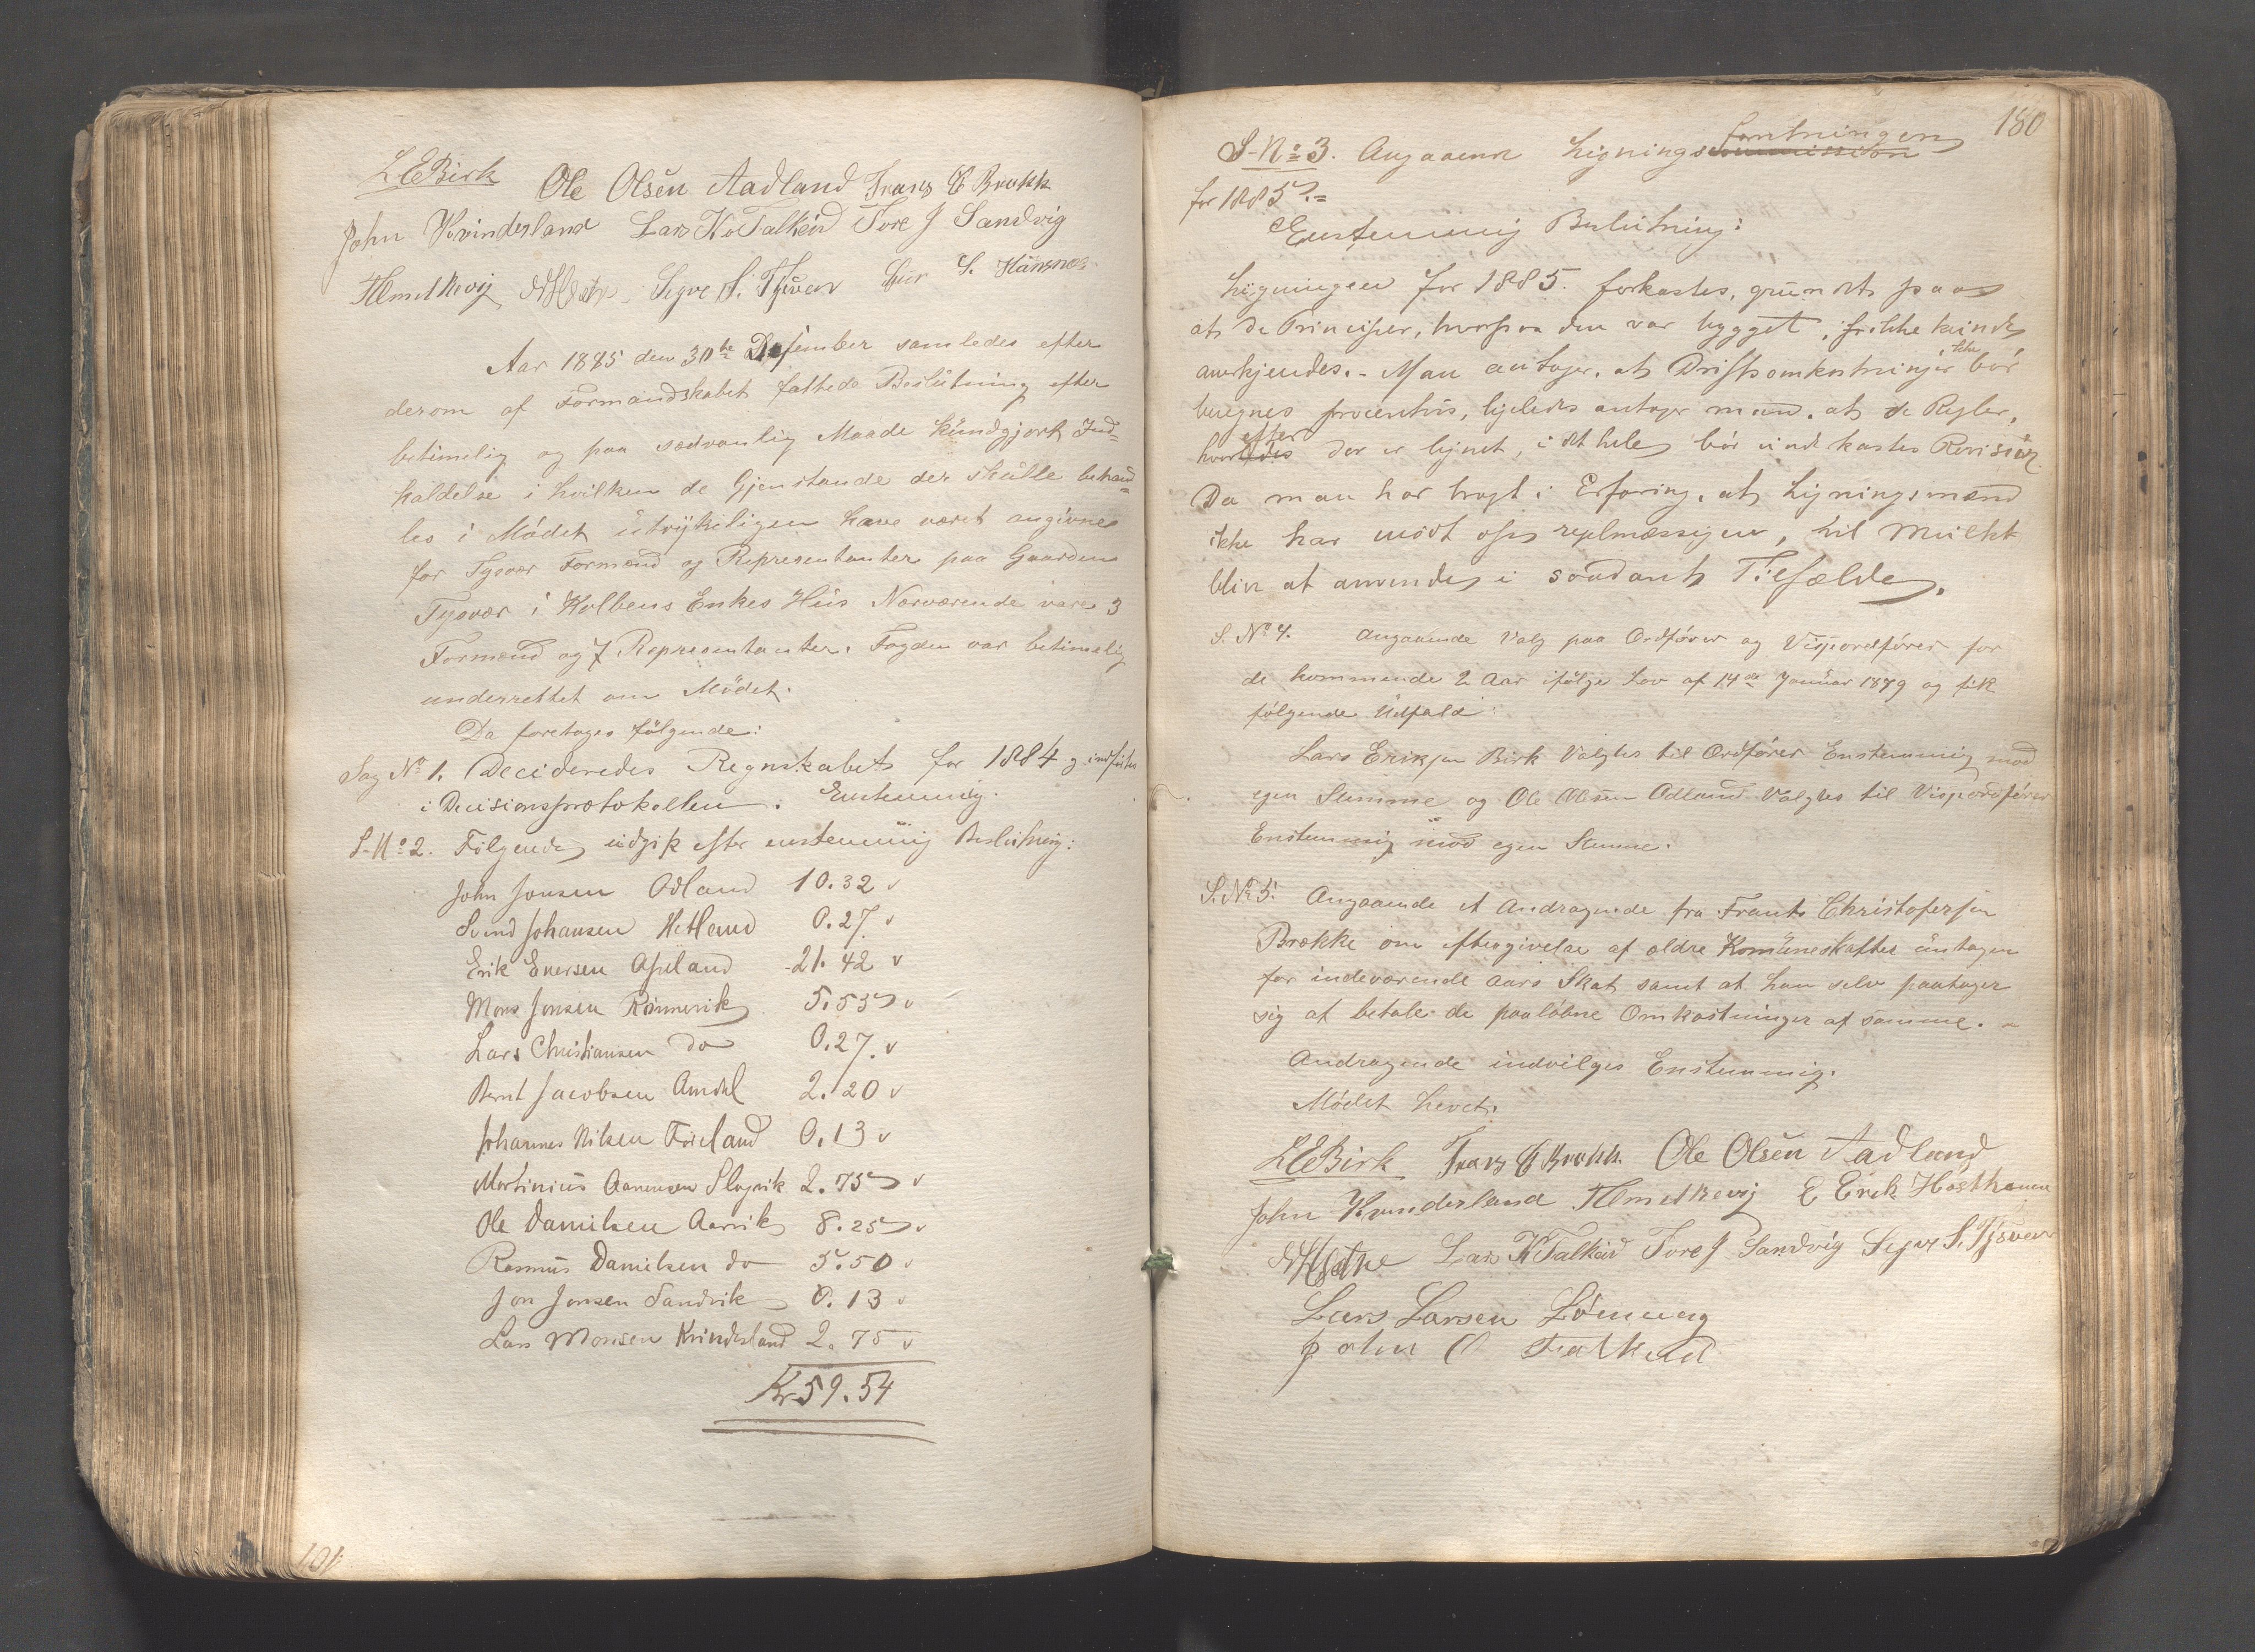 LEBirk Ole Olsen Aadland Frans C Brekk
John Kvindesland Lars K Falkeid Tore J Sandvig
Sigve S. Tysver S. Hansnes
Aar 1885 den 30te December samledes efter
derom af Formandskabet fattede Beslutning efter
betimelig og paa sædvanlig Maade kundgjort Ind-
kaldelse i hvilken de Gjenstande der skulle behand-
les i Mødet utrykeligen have været angivne
for Tysvær Formænd og Representanter paa Gaarden
Tysvær i Kolbens Enkes Hus Nærværende vare 3
Formænd og 7 Representanter. Fogden var betimelig
underrettet om Mødet.
Da foretages følgende:
Sag No 1. Decideredes Regnskabet for 1884 g indføites
i Decisionsprotokollen. Enstemmig.
S-No 2. Følgende udgik efter enstemmig Beslutning:
John Jonsen Odland 10.32 v
Svend Johansen Hetland 0.27 v
Erik Enersen Apeland 21.42 v
Mons Jonsen Rømmerik 5.53 v
Lars Christiansen do 0.27. v
Bernt Jacobsen Amdal 2.20 v
Johannes Nilsen Føieland 0.13 v
Martinius Aanensen Slogvik 2.75 v
Ole Danielsen Aarvik 8.25 v
Rasmus Danielsen do 5.50 v
Jon Jonsen Sandvik 0.13 v
Lars Monsen Kvindesland 2.75 v
Kr 59.54
101
180
S-No 3. Angaaende Ligningsforretningen
for 1885.=
Enstemmig Beslutning:
Ligningen for 1885. forkastes, grundet paa
at de Principer, hvorpaa den var bygget, ikke kunde
anerkjendes. - Man antager, at Driftsomkostninger ikke bør
beregnes procentvis, ligeledes antager man, at de Regler,
hvorefter der er lignet, i det hele bør underkastes Revision
Da man har bragt i Erfaring, at Ligningsmænd
ikke har mødt ofte reglmæssigen, vil Mulkt
bliver at anvendes i saadant Tilfælde.
S. No 4. Angaaende Valg paa Ordfører og Viseordfører for
de kommende 2 Aar ifølge Lov af 14de Januar 1879 og fik
følgende Udfald:
Lars Eriksen Birk Valgtes til Ordfører Enstemmig mod
egen Stemme og Ole Olsen Odland Valgtes til Viseordfører
Enstemmig mod egen Stemme.
S. No 5. Angaaende et Andragende fra Frants Christofersen
Brække om eftergivelse af ældre Komuneskatter untagen
for indeværende aars Skat samt at han selv paatager
sig at betale de paaløbne Omkostninger af samme. -
Andragende indvilges Enstemmig.
Mødet hevet.
LEBirk Frans C Brekk. Ole Olsen Aadland
John Kvindesland E Erek Hosthamm
Lars K Falkeid Tore J Sandvig Sigve S. Tysver
Lars Larsen Lønning
John O Falkeid